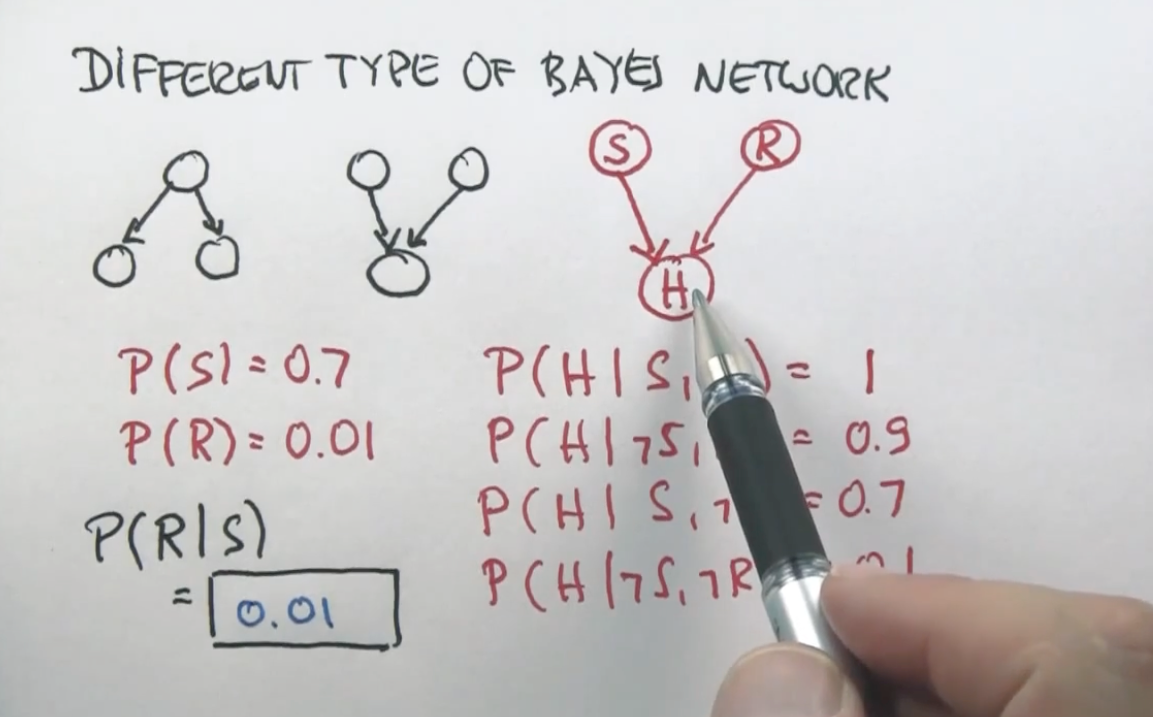 DIFFERENT TYPE OF BAYES NETWORK
S R
H
P(S) = 0.7
P(R) = 0.01
P(R|S)
= 0.01
P(H|S, ) = 1
P(H|¬S, = 0.9
P(H|S,¬ = 0.7
P(H|¬S,¬R